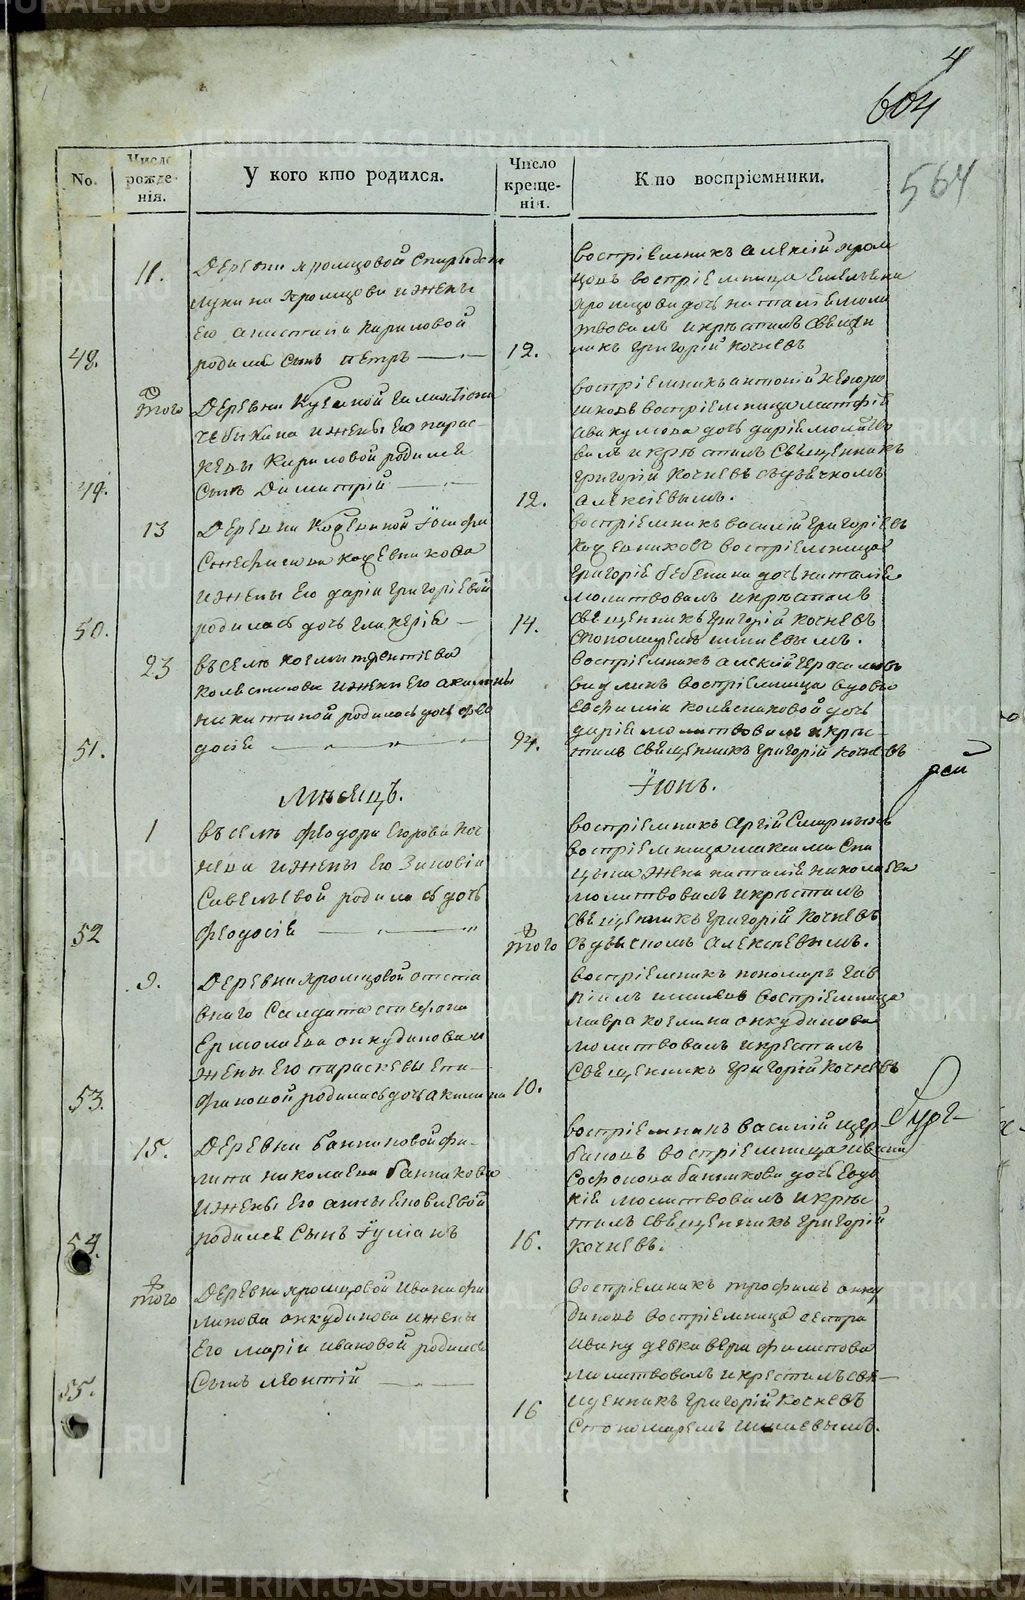 4
604
564
No.
Число рожденія.
У кого кто родился.
Число крещенія.
Кто воспріемники.
48.
11.
Деревни Храмцовой Спиридона
Лукина Храмцова и жены
Его Анистаіи Кириловой
родился Сынъ Петръ
12.
воспріемникъ Алексій Храм
цовъ воспріемница Емельяна
Храмцова дочь Наталія моли
твовалъ и крѣстилъ Священ
никъ Григорій Кочневъ
49.
того
Деревни
Чебыкина и жены Его Парас
кевы Кириловой родился
Сынъ Димитрій
12.
воспріемникъ Антоній
воспріемница Матфія
Авакумова дочь Дарія молитво
валъ и крѣстилъ Священникъ
Григорій Кочневъ съ дьячкомъ
Алексіевымъ.
50.
13
Деревни Кожевиной Іосифа
Кожевникова
и жены Его Даріи Григоріевой
родилась дочь Гликерія
14.
воспріемникъ Василій Григоріевъ
Кожевниковъ воспріемница
Григорія Бебенина дочь Наталія
молитвовалъ и крѣстилъ
Священникъ Григорій Кочневъ
Спономаремъ
51.
23
въ селѣ Козма Терентіева
Колесникова и жены Его Акилины
Никитиной родилась дочь Фео
досія
24.
воспріемникъ Алексій Герасимовъ
воспріемница вдова
Евфимія Колесниковой дочь
Дарія молитвовалъ и крѣс
тилъ Священникъ Григорій Кочневъ
рей
Мѣсяцъ.
Іюнь.
52
1
въ селѣ Феодора Егорова Коч
нева и жены Его Зиновіи
Савельевой родилась дочь
Феодосія
того
воспріемникъ Сергій Смирныхъ
воспріемница Максима Спи
цына жена Наталія Николаева
молитвовалъ и крѣстилъ
Священникъ Григорій Кочневъ
Съ дьячкомъ Алексѣевымъ.
53.
9.
Деревни Храмцовой отста
внаго Салдата Стефана
Ермолаева Онкудинова и
жены Его Параскевы Епи
фановой родилась дочь Акилина
10.
воспріемникъ пономарь Гав
ріилъ воспріемница
Мавра Козмина Онкудинова
молитвовалъ и крестилъ
Священникъ Григорій Кочневъ
54.
15.
Деревни Банниковой Фи
липа Николаева Банникова
и жены Его Анны Яковлевой
родился Сынъ Іуліанъ
16.
воспріемникъ Василій Щер
баковъ воспріемница Ивана
Софонова Банникова дочь Евдо
кія молитвовалъ и крѣс
тилъ Священникъ Григорій
Кочневъ.
55.
того
Деревни Храмцовой Ивана Фи
липова Онкудинова и жены
Его Маріи Ивановой родился
Сынъ Леонтій
16
воспріемникъ Трофимъ Онку
диновъ воспріемница Сестра
Ивану девка Вера Филипова
молитвовалъ и крестилъ Свя
щенникъ Григорій Кочневъ
Спономаремъ
METRIKI.GASO-URAL.RU